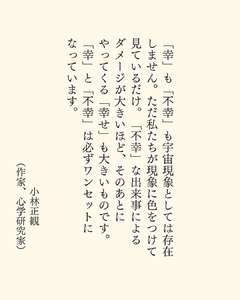 「幸」も「不幸」も宇宙現象としては存在
しません。ただ私たちが現象に色をつけて
見ているだけ。「不幸」な出来事による
ダメージが大きいほど、そのあとに
やってくる「幸せ」も大きいものです。
「幸」と「不幸」は必ずワンセットに
なっています。
小林正観
（作家、心学研究家）